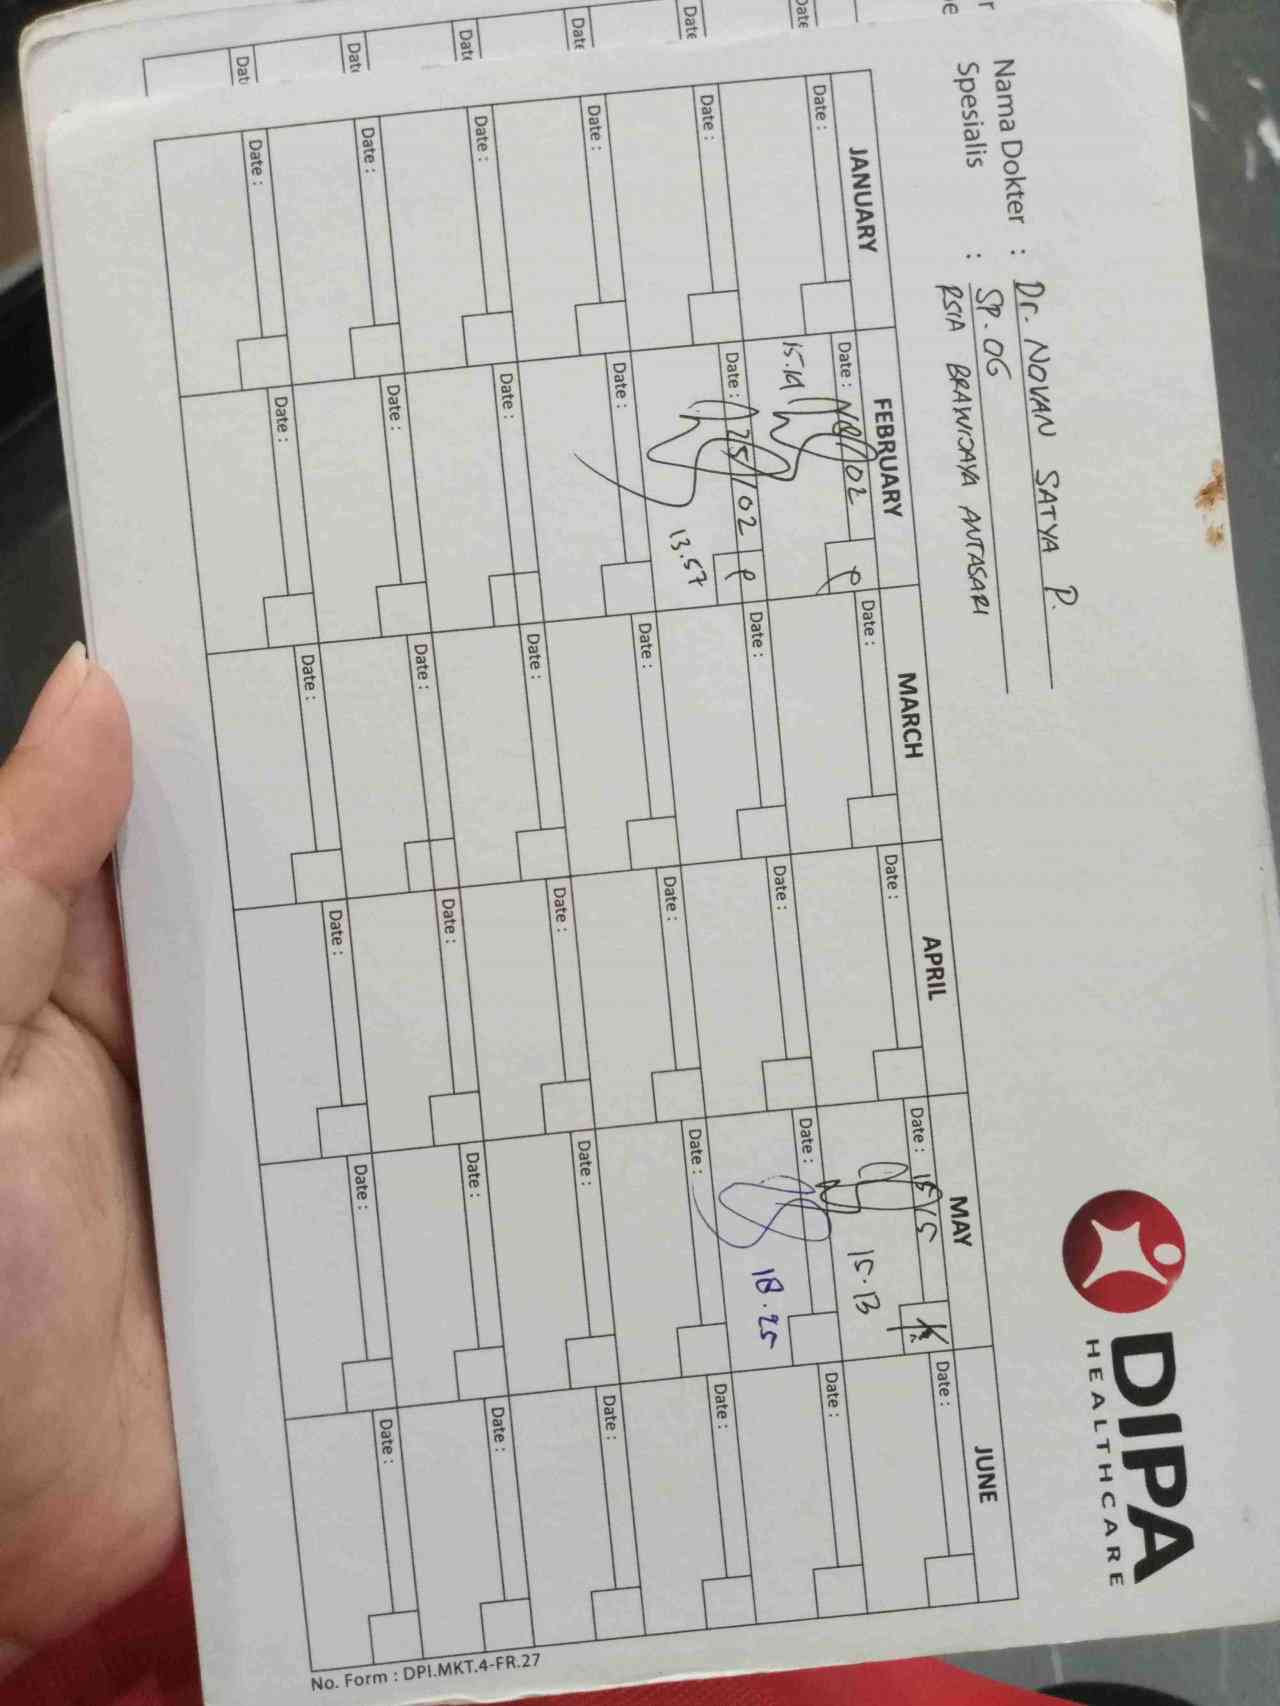 DIPA
HEALTHCARE
Nama Dokter : Dr. NOVAN SATYA P.
Spesialis : SP.OG
RSIA BRAWIJAYA ANTASARI
JANUARY FEBRUARY MARCH APRIL MAY JUNE
Date : Date : /02 P Date : Date : Date : 15/5 Date :
15.19 15.13
Date : Date : 25/02 P Date : Date : Date : Date :
13.57 18.25
Date : Date : Date : Date : Date : Date :
Date : Date : Date : Date : Date : Date :
Date : Date : Date : Date : Date : Date :
Date : Date : Date : Date : Date : Date :
No. Form : DPI.MKT.4-FR.27
Date
Date
Date
Date